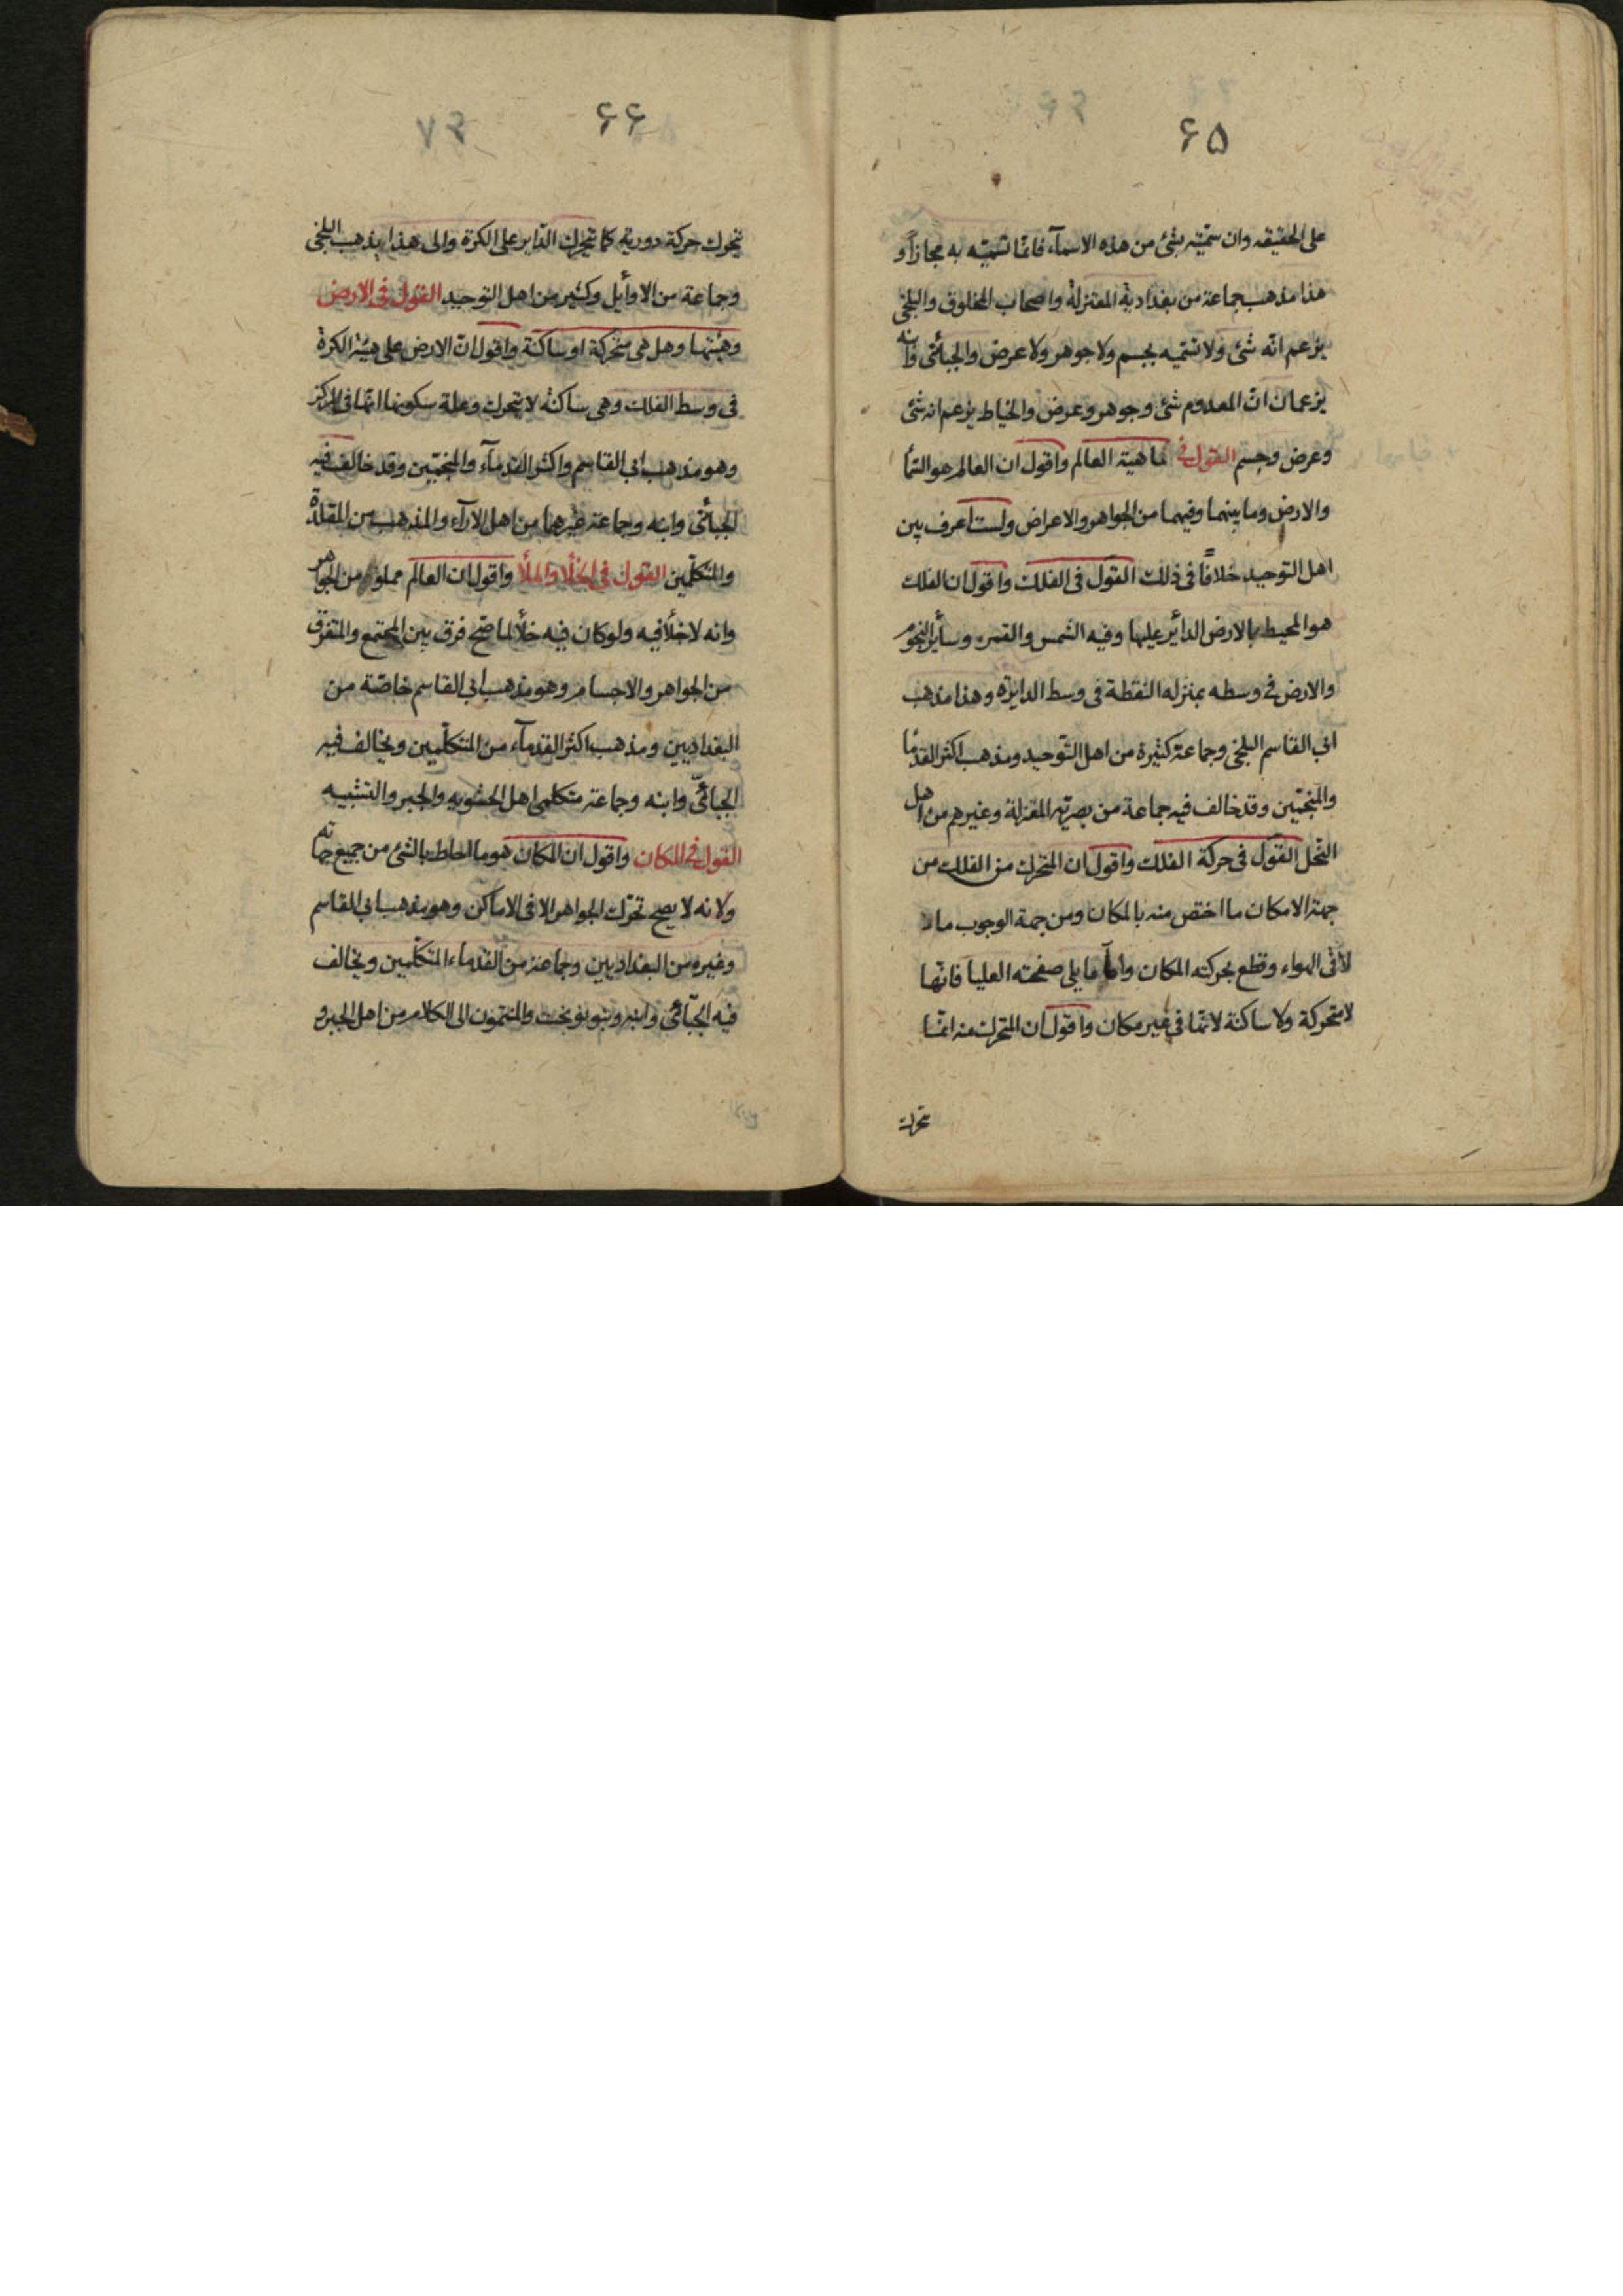 ۶۵
على الحقيقه وان سمّيته بشئ من هذه الاسمآء فانما تسميّته به مجازاً و
هذا مذهب جماعة من بغدادية المعتزلة واصحاب المخلوق والبلخى
يزعم انّه شئ ولا تسميه بجسم ولا جوهر ولا عرض والجبائى وابنه
يزعمان انّ المعدوم شئ وجوهر وعرض والخياط يزعم انه شئ
وعرض وجسم القول فى ماهية العالم واقول ان العالم هو السّمآ
والارض وما بينهما وفيهما من الجواهر والاعراض ولست اعرف بين
اهل التوحيد خلافًا فى ذلك القول فى الفلك واقول ان الفلك
هو المحيط بالارض الدائر عليها وفيه الشمس والقمر وسأير النجوم
والارض فى وسطه بمنزله النقطة فى وسط الدايرة وهذا مذهب
ابى القاسم البلخى وجماعة كثيرة من اهل التّوحيد ومذهب اكثر القدمآ
والمنجمّين وقد خالف فيه جماعة من بصرية المعتزلة وغيرهم من اهل
النّحل القول فى حركة الفلك واقول ان المتحرك من الفلك من
جهة الامكان ما اختص منه بالمكان ومن جهة الوجوب ما
لاقى الهواء وقطع بحركته المكان واما ما يلى صفحته العليا فانّها
لا متحركة ولا ساكنة لانّها فى غير مكان واقول ان المتحرك منه انمّا
تحرك
۶۶
۷۳
تحرك حركة دورية كما يتحرك الدّاير على الكرة والى هذا يذهب البلخى
وجماعة من الاوأيل وكثير من اهل التوحيد القول فى الارض
وهيئتها وهل هى متحركة او ساكنة واقول انّ الارض على هيئة الكرة
فى وسط الفلك وهى ساكنة لا تتحرك وعلة سكونها انها فى المركز
وهو مذهب ابى القاسم واكثر القدمآء والمنجمّين وقد خالف فيه
الجبائى وابنه وجماعة غيرهما من اهل الارآء والمذهب من المقلدة
والمتكلّمين القول فى الخلأ والملأ واقول ان العالم مملوء من الجواهر
وانه لا خلأ فيه ولو كان فيه خلأ لما صّح فرق بين المجتمع والمتفرق
من الجواهر والاجسام وهو مذهب ابى القاسم خاصّة من
البغداديين ومذهب اكثر القدمآء من المتكلّمين ويخالف فيه
الجبائىّ وابنه وجماعة متكلمى اهل الحشويه والجبر والتشبيه
القول فى المكان واقول ان المكان هو ما احاط بالشئ من جميع جهاته
ولانه لا يصح تحرّك الجواهر الا فى الاماكن وهو مذهب ابى القاسم
وغيره من البغداديين وجماعة من القدماء المتكلّمين ويخالف
فيه الجبّائى وابنه وبنو نوبخت والمنتمون الى الكلام من اهل الجبر و